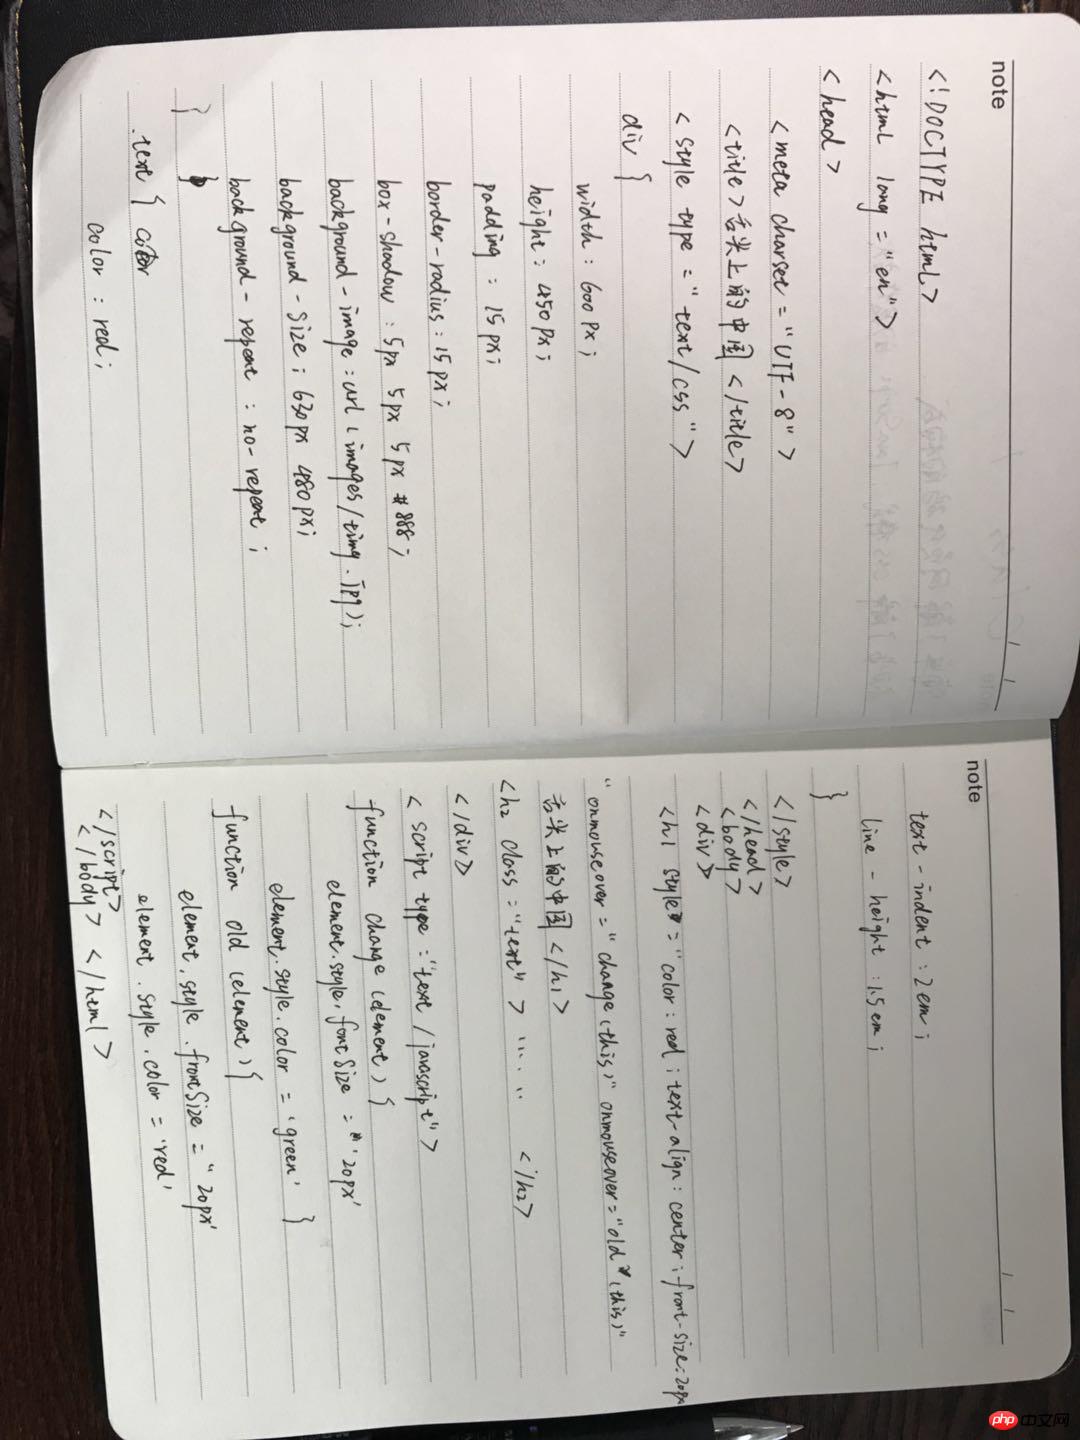 note
<!DOCTYPE html>
<html lang = "en">
<head>
<meta charset = "UTF-8">
<title>舌尖上的中国</title>
<style type = "text/css">
div {
width : 600 px ;
height : 450 px ;
padding : 15 px ;
border-radius : 15 px ;
box-shadow : 5px 5px 5px #888 ;
background-image : url ( images/timg.jpg ) ;
background-size : 630px 480px ;
background-repeat : no-repeat ;
}
}
.text { color
color : red ;
note
text-indent : 2em ;
line-height : 1.5em ;
}
</style>
</head>
<body>
<div>
<h1 style = "color : red ; text-align : center ; front-size : 20px
"onmouseover = "change (this)" onmouseover = "old (this)"
舌尖上的中国</h1>
<h2 class = "text" > ...... </h2>
</div>
<script type = "text/javascript">
function change (element) {
element.style.fontSize = '20px'
element.style.color = 'green' }
function old (element) {
element.style.frontSize = "20px'
element.style.color = 'red'
</script>
</body> </html>
php 中文网